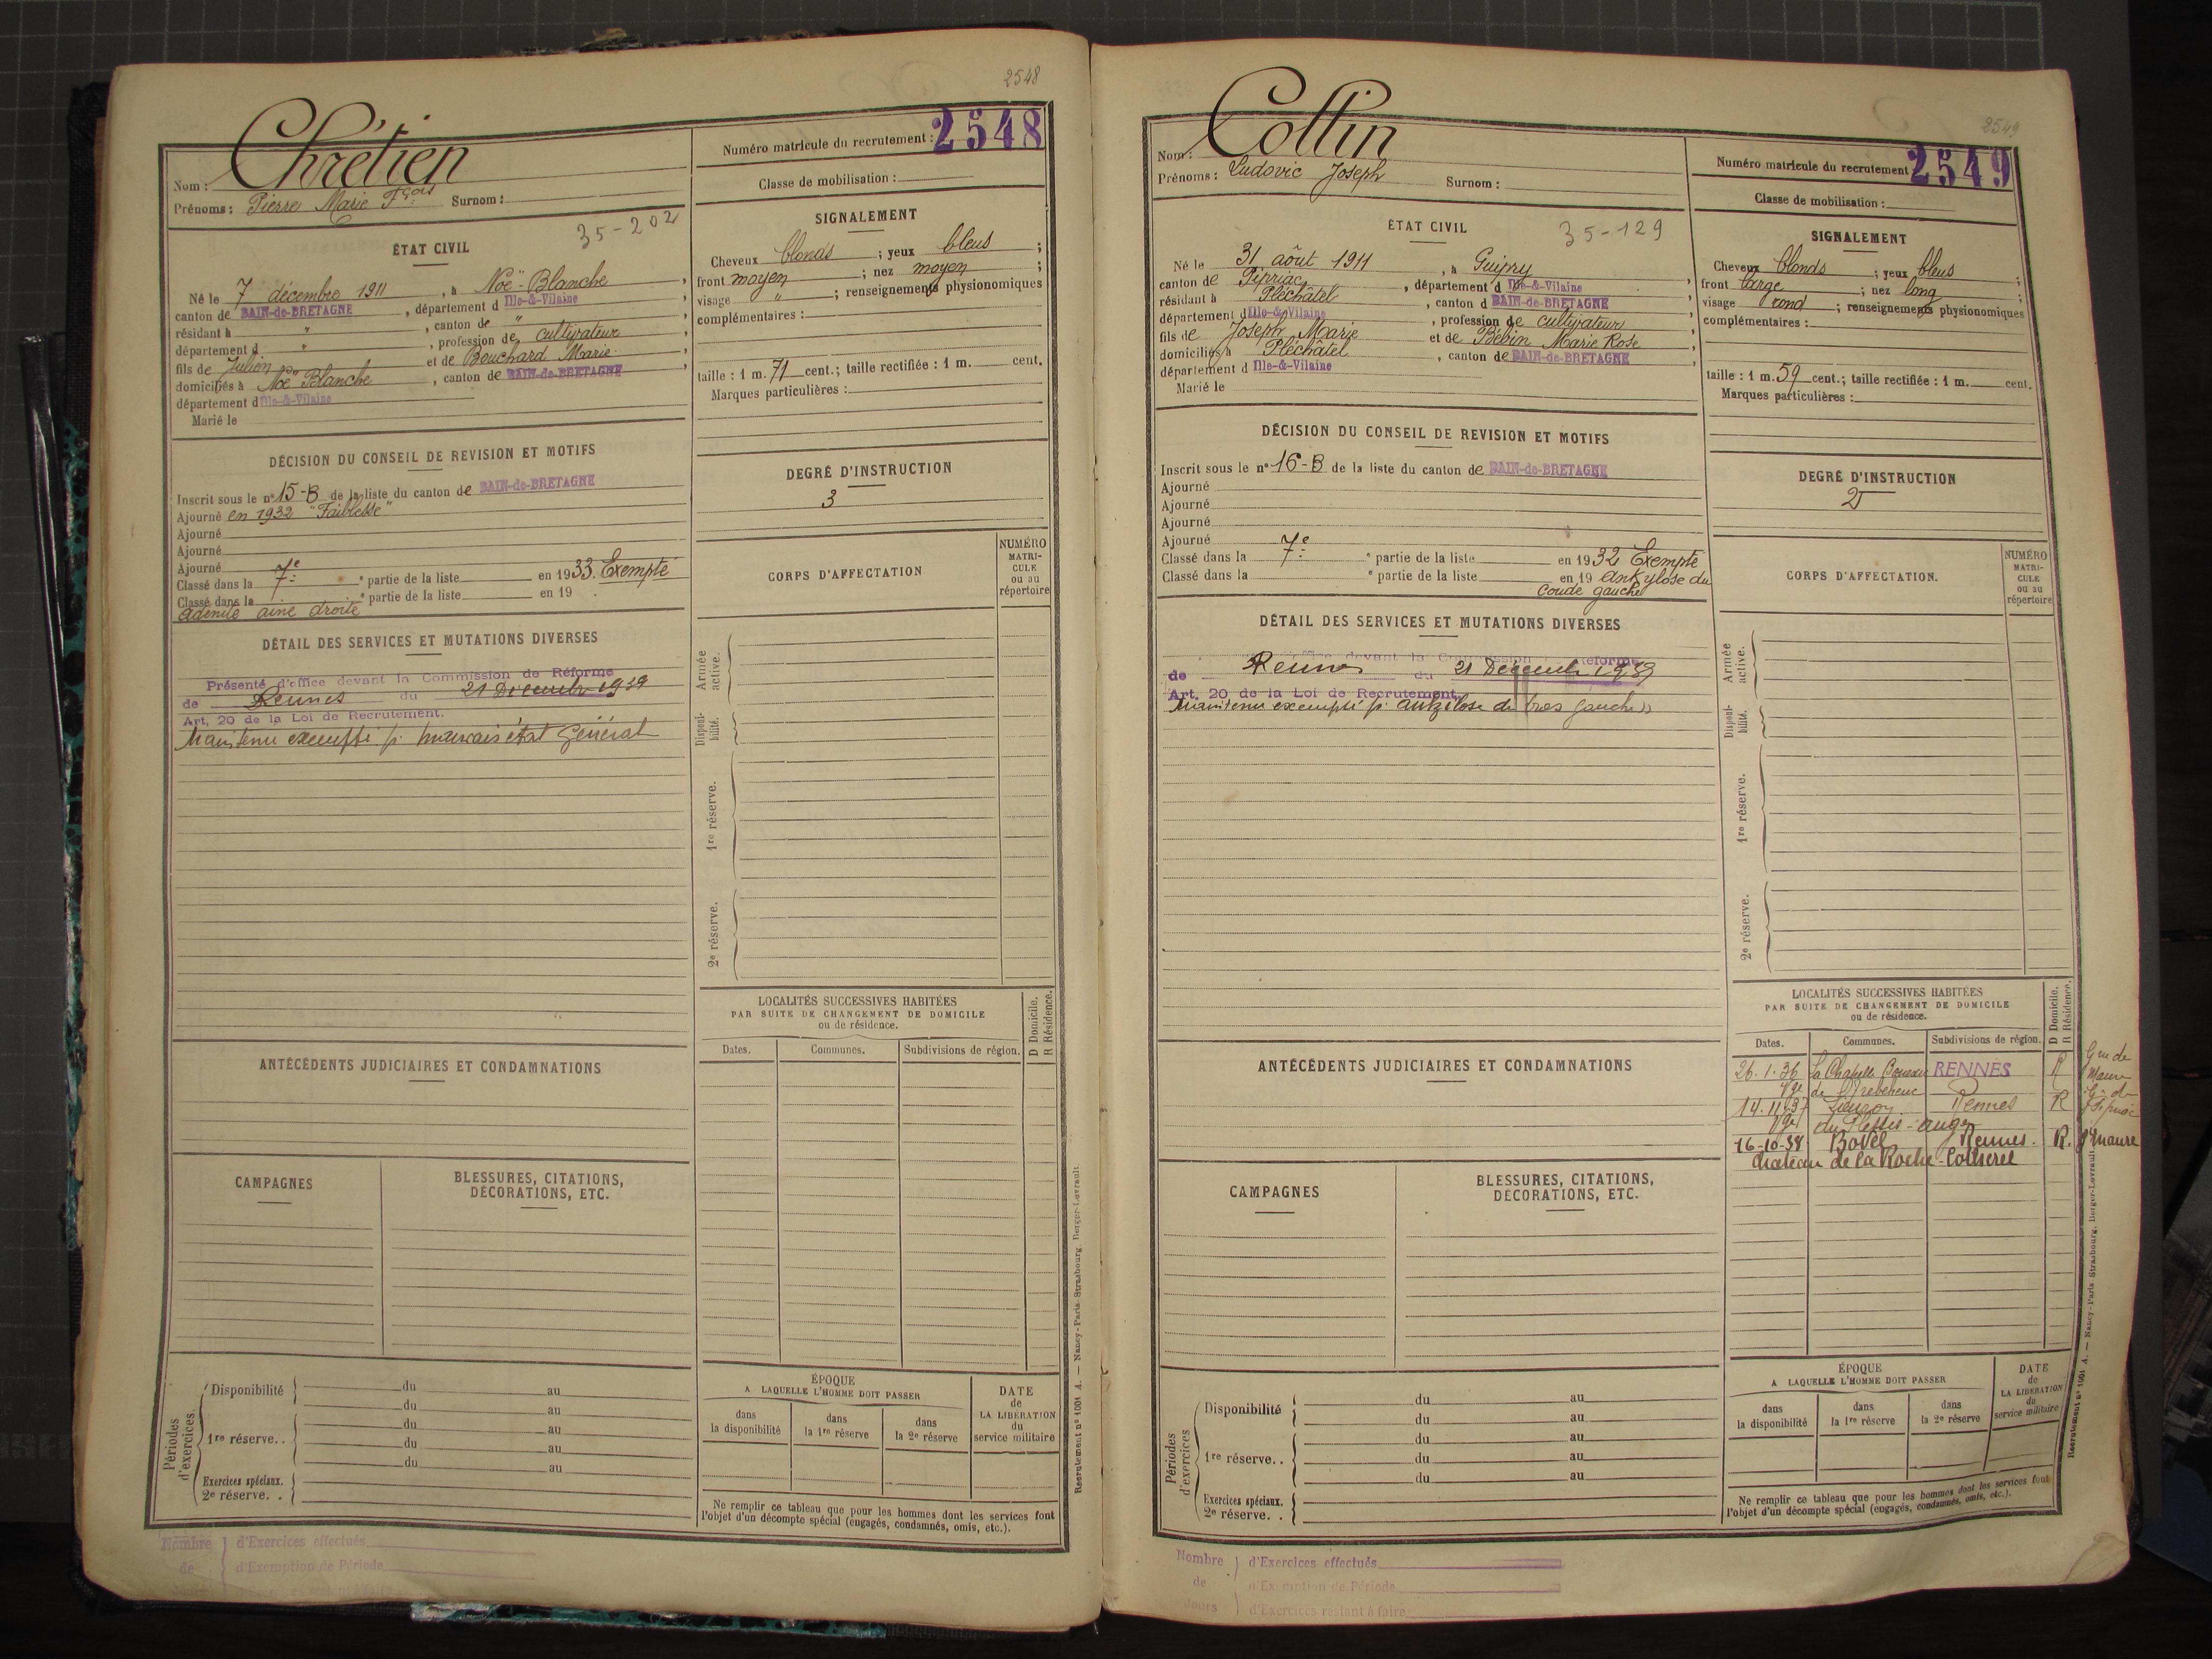 2548
Nom : Chrétien
Prénoms : Pierre Marie Fçois Surnom :
Numéro matricule du recrutement : 2548
Classe de mobilisation :
ÉTAT CIVIL
35-202
Né le 7 décembre 1911, à Noë-Blanche,
canton de BAIN-de-BRETAGNE, département d Ille-&-Vilaine
résidant à ", canton de ",
département d ", profession de cultivateur
fils de Julien et de Bouchard Marie,
domiciliés à Noë Blanche, canton de BAIN-de-BRETAGNE
département d Ille-&-Vilaine
Marié le
SIGNALEMENT
Cheveux blonds ; yeux bleus ;
front moyen ; nez moyen ;
visage " ; renseignements physionomiques
complémentaires :
taille : 1 m. 71 cent.; taille rectifiée : 1 m. cent.
Marques particulières :
DÉCISION DU CONSEIL DE REVISION ET MOTIFS
Inscrit sous le n° 15-B de la liste du canton de BAIN-de-BRETAGNE
Ajourné en 1932 "Faiblesse"
Ajourné
Ajourné
Ajourné
Classé dans la 7e e partie de la liste en 1933. Exempté
Classé dans la e partie de la liste en 19 .
adénite aine droite
DEGRÉ D'INSTRUCTION
3
CORPS D'AFFECTATION
NUMÉRO MATRI-CULE ou au répertoire
DÉTAIL DES SERVICES ET MUTATIONS DIVERSES
Présenté d'office devant la Commission de Réforme
de Rennes du 21 Décembre 1939
Art. 20 de la Loi de Recrutement.
Maintenu exempté p. mauvais état Général
Armée active.
Disponi-bilité.
1re réserve.
2e réserve.
LOCALITÉS SUCCESSIVES HABITÉES
PAR SUITE DE CHANGEMENT DE DOMICILE
ou de résidence.
D Domicile.
R Résidence.
Dates. Communes. Subdivisions de région.
ANTÉCÉDENTS JUDICIAIRES ET CONDAMNATIONS
CAMPAGNES
BLESSURES, CITATIONS,
DÉCORATIONS, ETC.
Périodes d'exercices.
Disponibilité du au
du au
1re réserve. . du au
du au
du au
Exercices spéciaux.
2e réserve. .
ÉPOQUE
A LAQUELLE L'HOMME DOIT PASSER
dans la disponibilité
dans la 1re réserve
dans la 2e réserve
DATE
de
LA LIBÉRATION
du
service militaire
Ne remplir ce tableau que pour les hommes dont les services font
l'objet d'un décompte spécial (engagés, condamnés, omis, etc.).
Recrutement n° 1001 A. — Nancy-Paris-Strasbourg, Berger-Levrault.
Nombre d'Exercices effectués
de d'Exemption de Période
2549
Nom : Collin
Prénoms : Ludovic Joseph Surnom :
Numéro matricule du recrutement 2549
Classe de mobilisation :
ÉTAT CIVIL
35-129
Né le 31 août 1911, à Guipry,
canton de Pipriac, département d Ille-&-Vilaine
résidant à Pléchâtel, canton d BAIN-de-BRETAGNE
département d Ille-&-Vilaine, profession de cultivateur,
fils de Joseph Marie et de Bébin Marie Rose,
domiciliés à Pléchâtel, canton de BAIN-de-BRETAGNE
département d Ille-&-Vilaine
Marié le
SIGNALEMENT
Cheveux blonds ; yeux bleus ;
front large ; nez long ;
visage rond ; renseignements physionomiques
complémentaires :
taille : 1 m. 59 cent.; taille rectifiée : 1 m. cent.
Marques particulières :
DÉCISION DU CONSEIL DE REVISION ET MOTIFS
Inscrit sous le n° 16-B de la liste du canton de BAIN-de-BRETAGNE
Ajourné
Ajourné
Ajourné
Ajourné
Classé dans la 7e e partie de la liste en 1932 Exempté
Classé dans la e partie de la liste en 19 ankylose du
coude gauche
DEGRÉ D'INSTRUCTION
2
CORPS D'AFFECTATION.
NUMÉRO MATRI-CULE ou au répertoire
DÉTAIL DES SERVICES ET MUTATIONS DIVERSES
office devant la Commission Réforme
de Rennes du 21 Décembre 1939
Art. 20 de la Loi de Recrutement.
Maintenu exempté p. ankylose du bras gauche
Armée active.
Disponi-bilité.
1re réserve.
2e réserve.
LOCALITÉS SUCCESSIVES HABITÉES
PAR SUITE DE CHANGEMENT DE DOMICILE
ou de résidence.
D Domicile.
R Résidence.
Dates. Communes. Subdivisions de région.
26.1.36 La Chapelle RENNES R Gie de Maure
14.11.37 Rennes R Gie de Pipriac
du Plessis-
16-10-38 Bovel Rennes. R. Maure
Château de la Roche-
ANTÉCÉDENTS JUDICIAIRES ET CONDAMNATIONS
CAMPAGNES
BLESSURES, CITATIONS,
DÉCORATIONS, ETC.
Périodes d'exercices
Disponibilité du au
du au
1re réserve. . du au
du au
du au
Exercices spéciaux.
2e réserve. .
ÉPOQUE
A LAQUELLE L'HOMME DOIT PASSER
dans la disponibilité
dans la 1re réserve
dans la 2e réserve
DATE
de
LA LIBÉRATION
du
service militaire
Ne remplir ce tableau que pour les hommes dont les services font
l'objet d'un décompte spécial (engagés, condamnés, omis, etc.).
Recrutement n° 1001 A. — Nancy-Paris Strasbourg, Berger-Levrault.
Nombre d'Exercices effectués
de d'Exemption de Période
Jours d'Exercices restant à faire